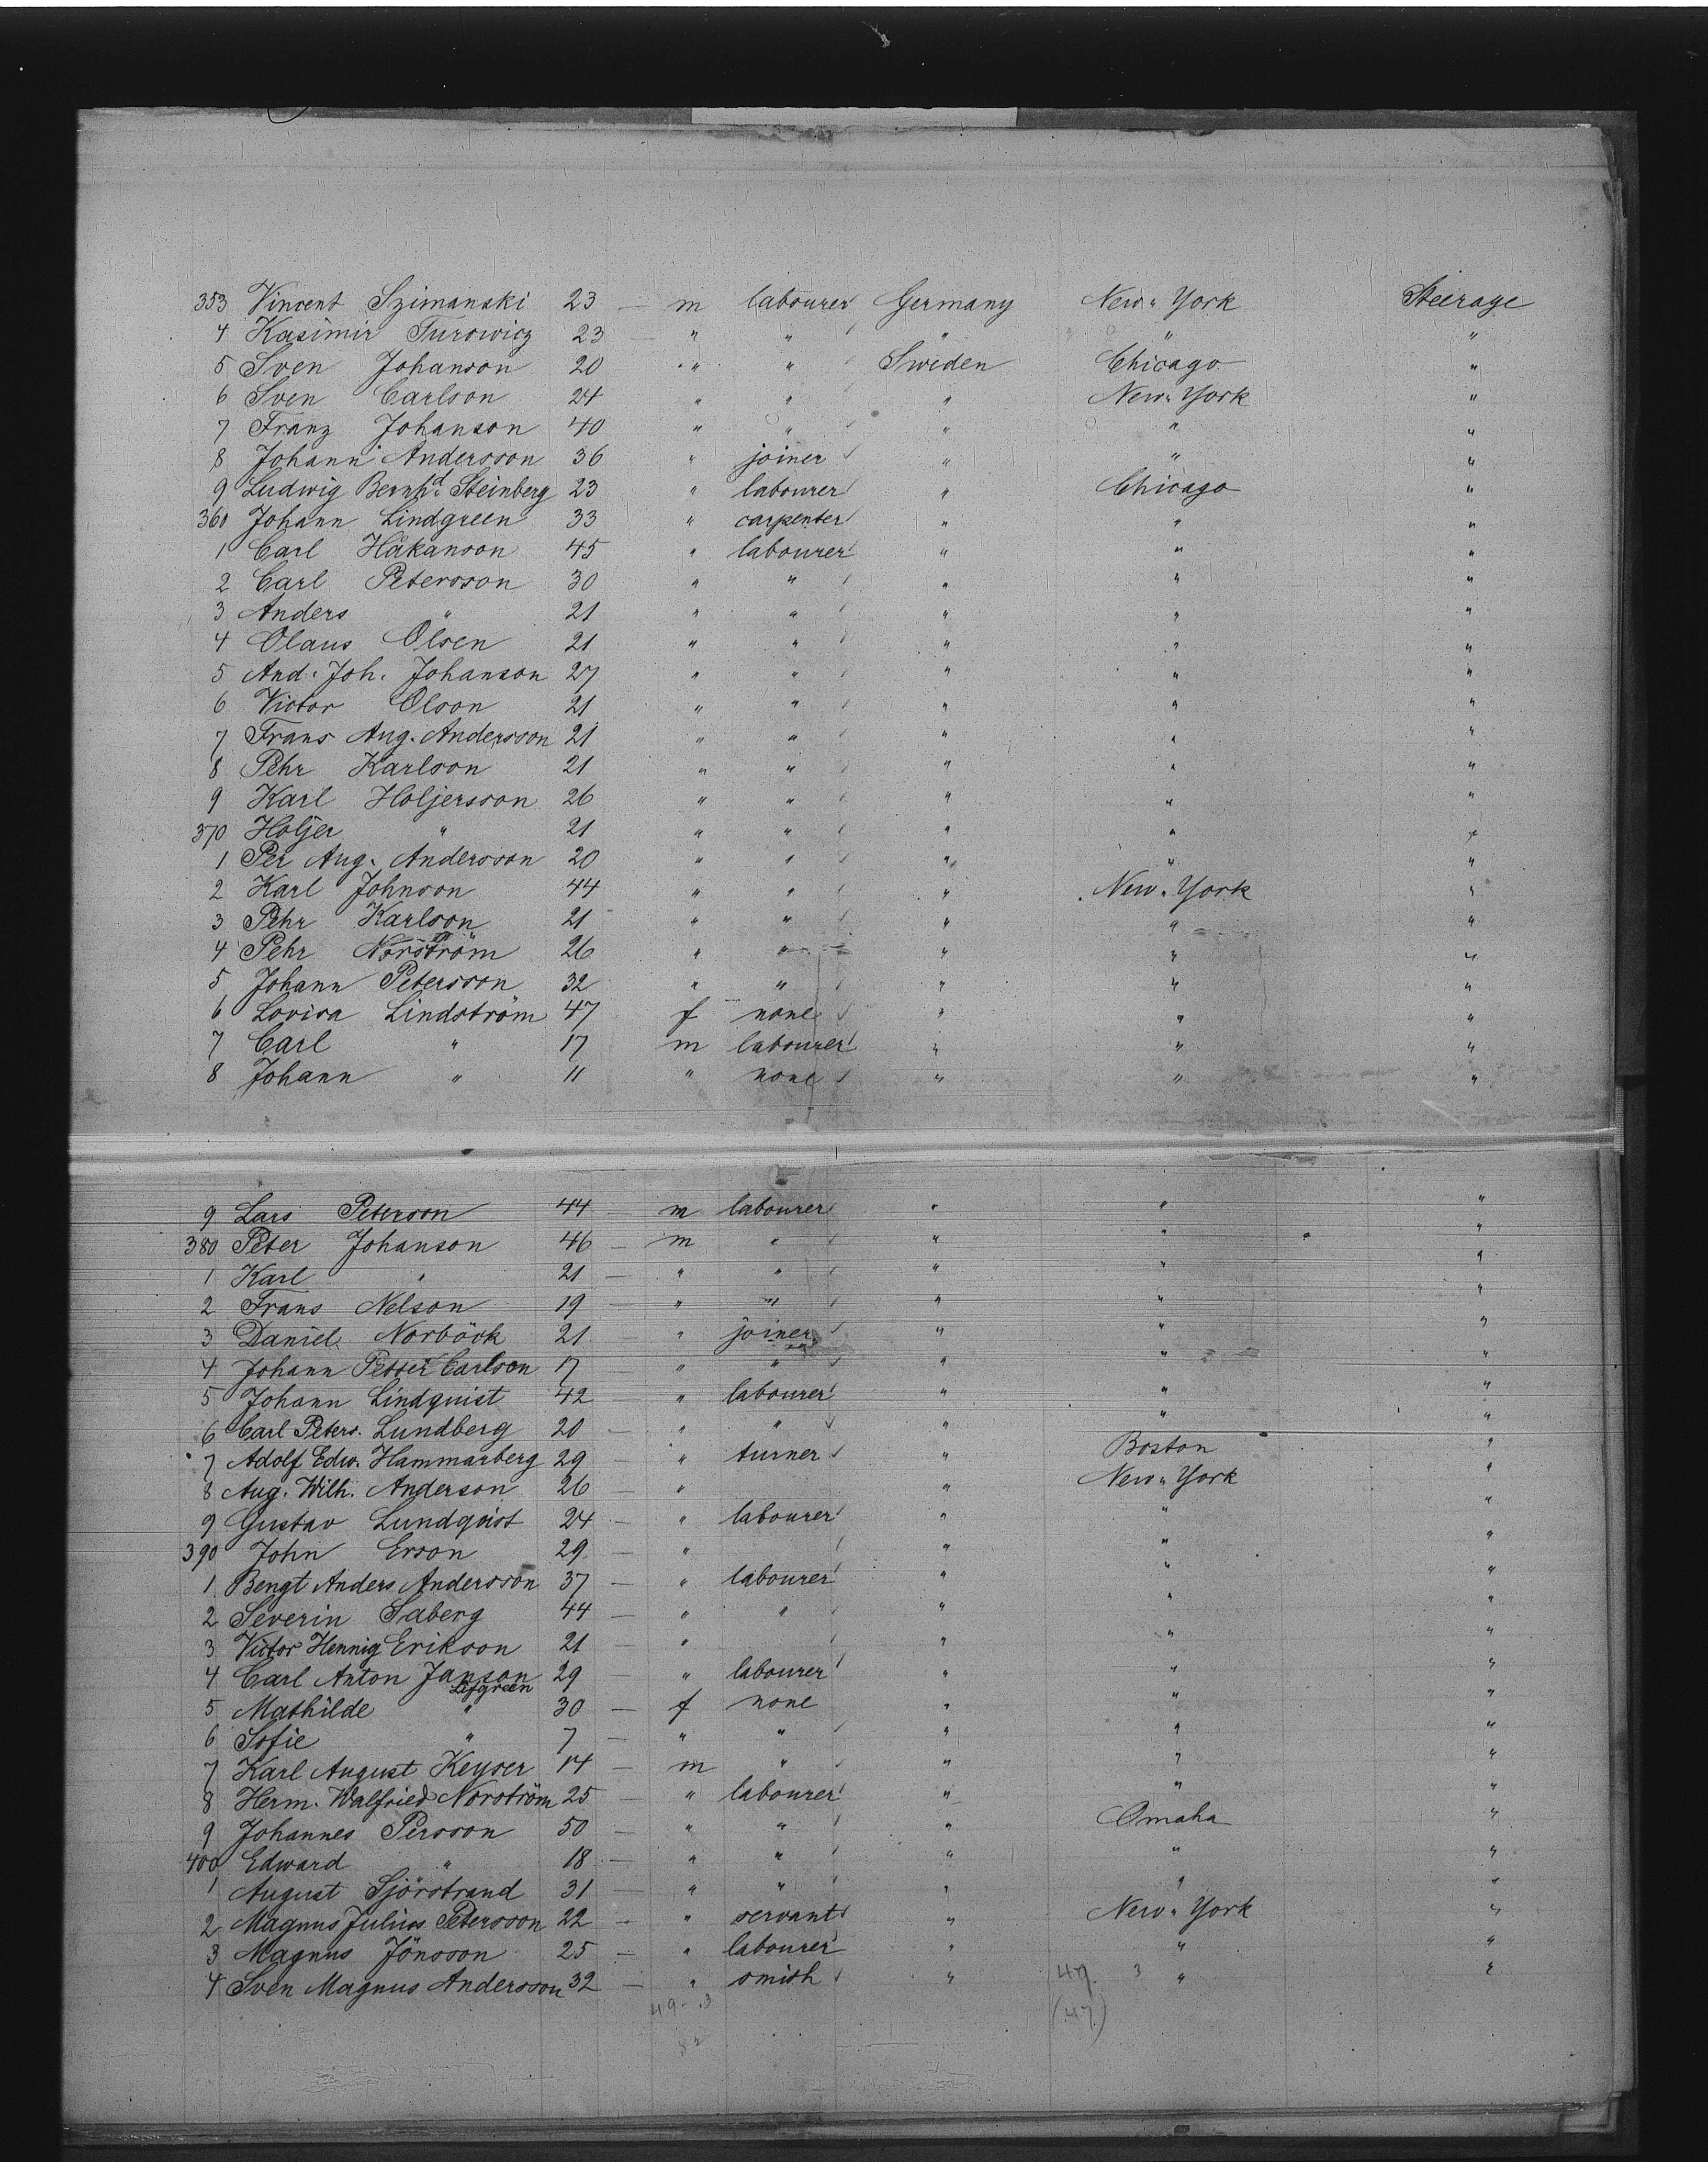 353 Vincent Szimanski 23 — m labourer Germany New-York Steerage
4 Kasimir Turowicz 23 — " " " " "
5 Sven Johanson 20 " " Sweden Chicago "
6 Sven Carlson 24 " " " New-York "
7 Franz Johanson 40 " " " " "
8 Johann Andersson 36 " joiner " " "
9 Ludwig Bernhd. Steinberg 23 " labourer " Chicago "
360 Johann Lindgreen 33 " carpenter " " "
1 Carl Håkanson 45 " labourer " " "
2 Carl Petersson 30 " " " " "
3 Anders " 21 " " " " "
4 Olaus Olsen 21 " " " " "
5 And. Joh. Johanson 27 " " " " "
6 Victor Olson 21 " " " " "
7 Frans Aug. Andersson 21 " " " " "
8 Pehr Karlson 21 " " " " "
9 Karl Holjersson 26 " " " " "
370 Holjer " 21 " " " " "
1 Per Aug. Andersson 20 " " " " "
2 Karl Johnson 44 " " " New-York "
3 Pehr Karlson 21 " " " " "
4 Pehr Norström 26 " " " " "
5 Johann Petersson 32 " " " " "
6 Lovisa Lindström 47 f none " " "
7 Carl " 17 m labourer " " "
8 Johann " 11 " none " " "
9 Lars Peterson 44 — m labourer " " "
380 Peter Johanson 46 — m " " " "
1 Karl " 21 — " " " " "
2 Frans Nelson 19 — " " " " "
3 Daniel Norböck 21 " joiner " " "
4 Johann Petter Carlson 17 " " " " "
5 Johann Lindquist 42 — " labourer " " "
6 Carl Peters. Lundberg 20 — " " " " "
7 Adolf Edw. Hammarberg 29 — " turner " Boston "
8 Aug. Wilh. Anderson 26 — " " New-York "
9 Gustav Lundqvist 24 — " labourer " " "
390 John Erson 29 — " " " "
1 Bengt Anders Andersson 37 — " labourer " " "
2 Severin Saberg 44 — " " " " "
3 Victor Hennig Erikson 21 — " " " "
4 Carl Anton Janson 29 — " labourer " " "
5 Mathilde " 30 — f none " " "
6 Sofie " 7 — " " " " "
7 Karl August Keyser 14 — m " " " "
8 Herm. Walfried Norström 25 — " labourer " " "
9 Johannes Persson 50 — " " " Omaha "
400 Edward " 18 — " " " " "
1 August Sjöstrand 31 — " " " " "
2 Magnus Julius Petersson 22 — " servant " New-York "
3 Magnus Jönsson 25 — " labourer " " "
4 Sven Magnus Andersson 32 — " smith " 49. 3 " "
49-.3 (47)